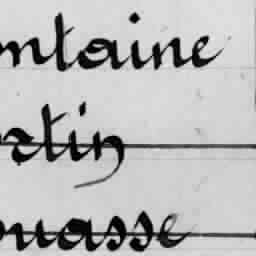 ntaine
rtin
uasse